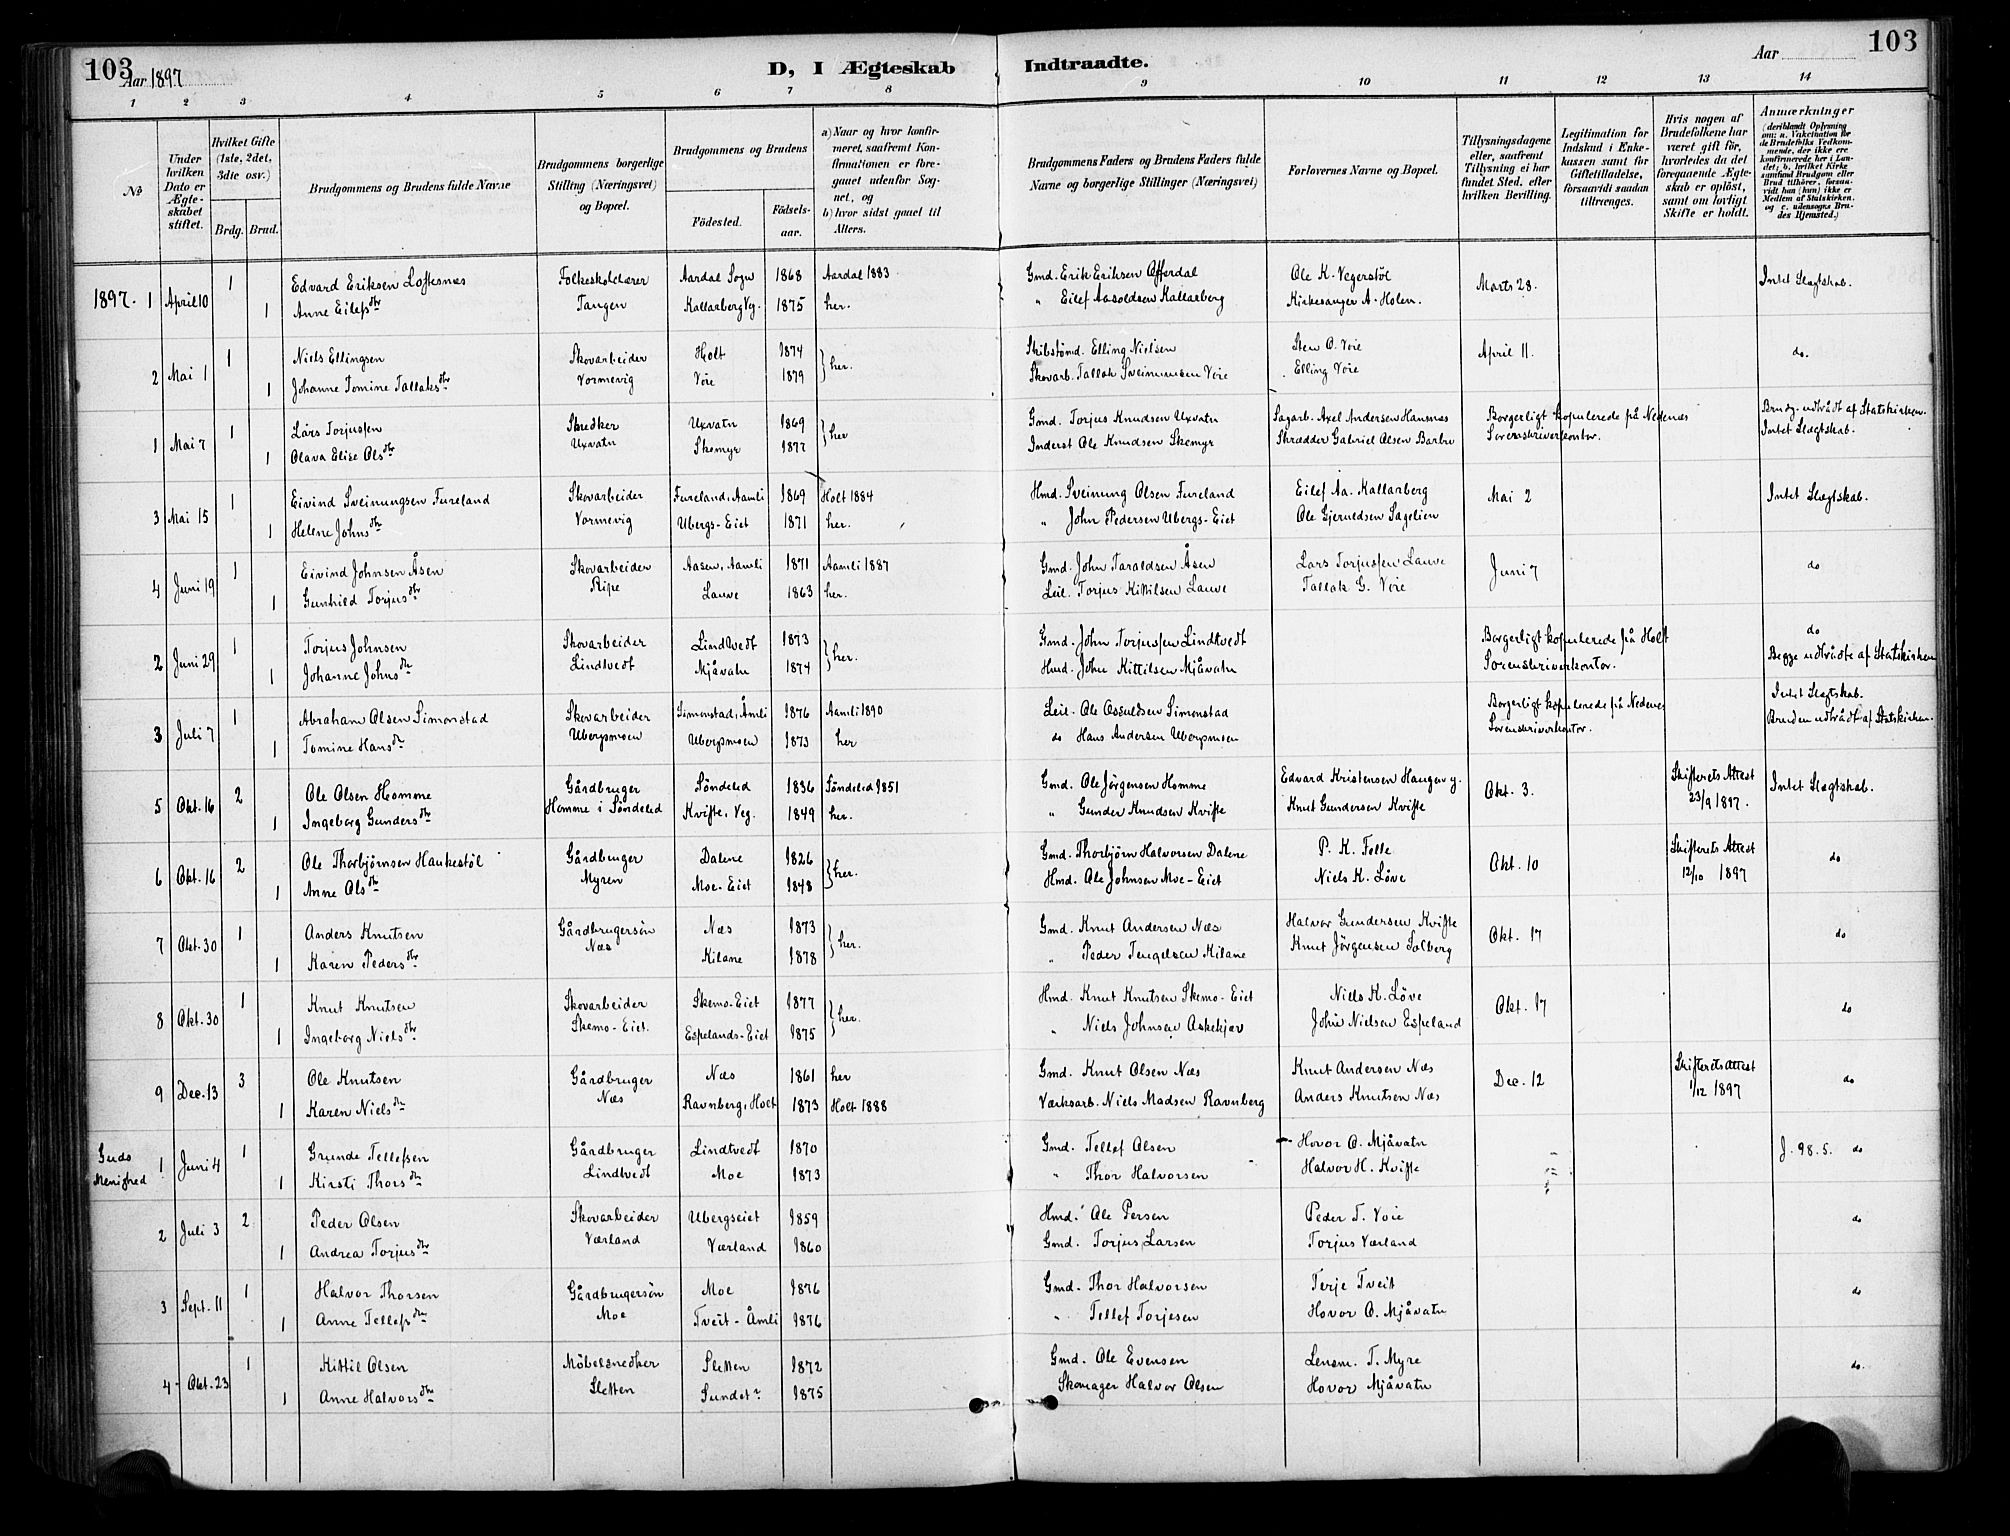 103
Aar 1897
D, I Ægteskab
Indtraadte.
Aar
103
1 2 3 4 5 6 7 8 9 10 11 12 13 14
No
Under hvilken Dato er Ægteskabet stiftet.
Hvilket Gifte (1ste, 2det, 3die osv.)
Brdg. Brud.
Brudgommens og Brudens fulde Navne
Brudgommens borgerlige Stilling (Næringsvei) og Bopæl.
Brudgommens og Brudens
Fødested.
Fødselsaar.
a) Naar og hvor konfirmeret, saafremt Konfirmationen er foregaaet udenfor Sognet, og
b) hvor sidst gaaet til Alters.
Brudgommens Faders og Brudens Faders fulde Navne og borgerlige Stillinger (Næringsvei)
Forlovernes Navne og Bopæl.
Tillysningsdagene eller, saafremt Tillysning ei har fundet Sted, efter hvilken Bevilling.
Legitimation for Indskud i Enkekassen samt for Giftetilladelse, forsaavidt saadan tiltrænges.
Hvis nogen af Brudefolkene har været gift før, hvorledes da det foregaaende Ægteskab er opløst, samt om lovligt Skifte er holdt.
Anmærkninger (deriblandt Oplysning om: a. Vakcination for de Brudefolks Vedkommende, der ikke ere konfirmerede her i Landet; b. hvilket Kirkesamfund Brudgom eller Brud tilhører, forsaavidt han (hun) ikke er Medlem af Statskirken, og c. udensogns Brudes Hjemsted.)
1897. 1 April 10 1 Edvard Eriksen Loftesnæs Folkeskolelærer Aardal Sogn 1868 Aardal 1883 Gmd. Erik Eriksen Offerdal Ole K. Vegerstöl Marts 28. Intet Slægtskab.
1 Anne Eilefsdtr Tangen Kallarberg Veg. 1875 her. " Eilef Aasoldsen Kallarberg Kirkesanger A. Holen.
2 Mai 1 1 Niels Ellingsen Skovarbeider Holt 1874 her. Skibstömd. Elling Nielsen Sten O. Voie April 11. do.
1 Johanne Tomine Tallaksdtr Vormevig Voie 1879 Skovarb. Tallak Sveinunsen Voie Elling Voie
1 Mai 7 1 Lars Torjussen Snedker Uxvatn 1869 her Gmd. Torjus Knudsen Uxvatn Sagarb. Axel Andersen Hansnæs Borgerligt kopulerede på Nedenæs Brudg. udtrådt af Statskirken.
1 Olava Elise Olsdtr Uxvatn Skomyr 1877 Inderst Ole Knudsen Skomyr Skrædder Gabriel Olsen Barbu Sorenskriverkontor. Intet Slægtskab.
3 Mai 15 1 Eivind Sveinungsen Fureland Skovarbeider Fureland, Aamli 1869 Holt 1884 Hmd. Sveinung Olsen Fureland Eilef Aa. Kallarberg Mai 2 Intet Slægtskab.
1 Helene Johnsdtr Vormevig Ubergs-Eiet 1871 her. " John Pedersen Ubergs-Eiet Ole Gjeruldsen Sagelien
4 Juni 19 1 Eivind Johnsen Åsen Skovarbeider Aasen, Aamli 1871 Aamli 1887 Gmd. John Taraldsen Åsen Lars Torjussen Lauve Juni 7 do
1 Gunhild Torjusdtr Ripe Lauve 1863 her. Leil. Torjus Kittilsen Lauve Tallak G. Voie
2 Juni 29 1 Torjus Johnsen Skovarbeider Lindtvedt 1873 her. Gmd. John Torjussen Lindtvedt Borgerligt kopulerede på Holt do
1 Johanne Johnsdtr Lindtvedt Mjåvatn 1874 Hmd. John Kittilsen Mjåvatn Sorenskriverkontor. Begge udtrådte af Statskirken
3 Juli 7 1 Abraham Olsen Simonstad Skovarbeider Simonstad, Åmli 1876 Aamli 1890 Leil. Ole Osuldsen Simonstad Borgerligt kopulerede på Nedenes Intet Slægtskab.
1 Tomine Hansdtr Ubergsmoen Ubergsmoen 1873 her do Hans Andersen Ubergsmoen Sorenskriverkontor. Bruden udtrådt af Statskirken.
5 Okt. 16 2 Ole Olsen Homme Gårdbruger Söndeled 1836 Söndeled 1851 Gmd. Ole Jörgensen Homme Edvard Kristensen Haugerv g. Okt. 3. Skifterets Attest 23/9 1897. Intet Slægtskab.
1 Ingeborg Gundersdtr Homme i Söndeled Kvifte, Veg. 1849 her. " Gunder Knudsen Kvifte Knut Gundersen Kvifte
6 Okt. 16 2 Ole Thorbjørnsen Haukestöl Gårdbruger Dalene 1826 her. Gmd. Thorbjörn Halvorsen Dalene P. K. Felle Okt. 10 Skifterets Attest 12/10 1897 do
1 Anne Olsdtr Myren Moe-Eiet 1848 Hmd. Ole Johnsen Moe-Eiet Niels K. Löve
7 Okt. 30 1 Anders Knutsen Gårdbrugersön Næs 1873 her. Gmd. Knut Andersen Næs Halvor Gundersen Kvifte Okt. 17 do
1 Karen Pedersdtr Næs Kilane 1878 " Peder Tengelsen Kilane Knut Jörgensen Solberg
8 Okt. 30 1 Knut Knutsen Skovarbeider Skemo-Eiet 1877 her. Hmd. Knut Knutsen Skemo-Eiet Niels K. Löve Okt. 17 do
1 Ingeborg Nielsdtr Skemo-Eiet. Espelands-Eiet 1875 " Niels Johnsen Askekjær John Nielsen Espeland
9 Dec. 13 3 Ole Knutsen Gårdbruger Næs 1861 her Gmd. Knut Olsen Næs Knut Andersen Næs Dec. 12 Skifterets attest 1/12 1897 do
1 Karen Nielsdtr Næs Ravnberg, Holt 1873 Holt 1888 Værksarb. Niels Madsen Ravnberg Anders Knutsen Næs
Guds Menighed 1 Juni 4 1 Grunde Tellefsen Gårdbruger Lindtvedt 1870 Gmd. Tellef Olsen Hovor O. Mjåvatn J. 98. 5. do
1 Kirsti Thorsdtr Lindtvedt Moe 1873 " Thor Halvorsen Halvor H. Kvifte
2 Juli 3 2 Peder Olsen Skovarbeider Ubergseiet 1859 Hmd. Ole Persen Peder T. Voie do
1 Andrea Torjusdtr Værland Værland 1860 Gmd. Torjus Larsen Torjus Værland
3 Sept. 11 1 Halvor Thorsen Gårdbrugersön Moe 1876 Gmd. Thor Halvorsen Terje Tveit do
1 Anne Tellefsdtr Moe Tveit - Åmli 1876 " Tellef Torjesen Hovor O. Mjåvatn
4 Okt. 23 1 Kittil Olsen Möbelsnedker Sletten 1872 Gmd. Ole Evensen Lensm. T. Myre do.
1 Anne Halvorsdtr Sletten Sundet 1875 Skomager Halvor Olsen Hovor Mjåvatn